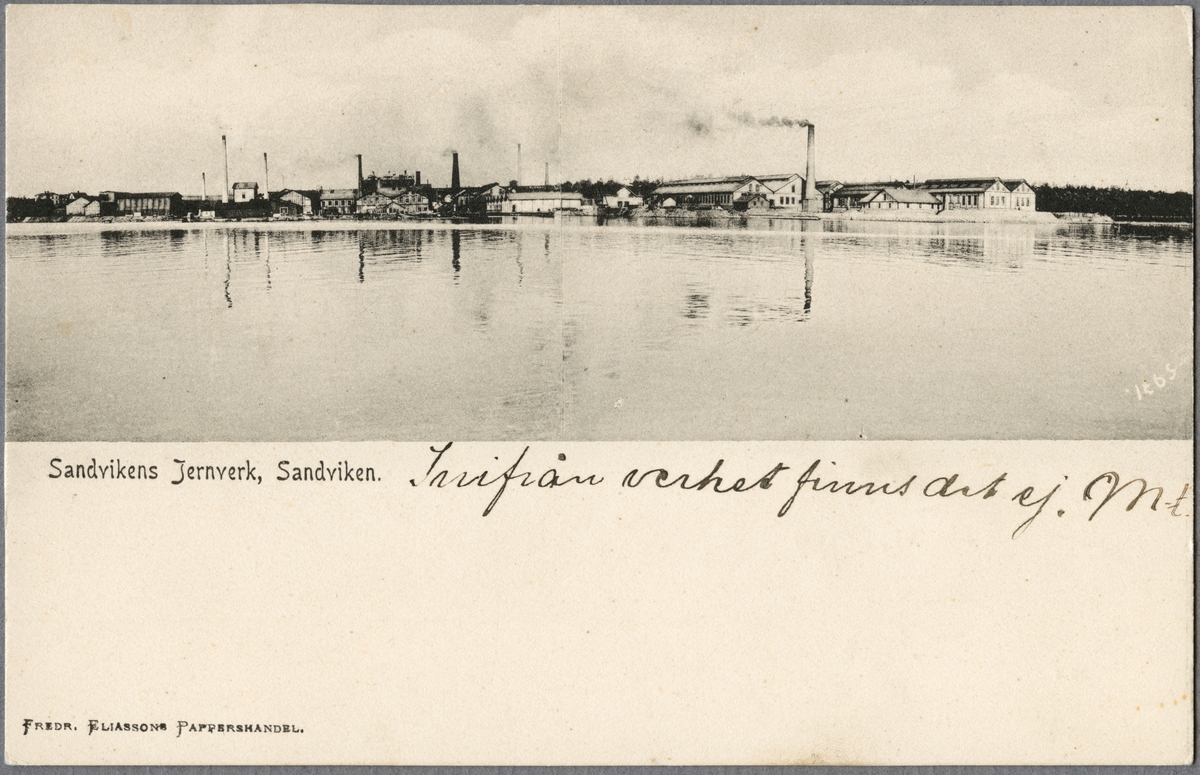 Sandvikens Jernverk, Sandviken. Inifrån verket finns det ej. M-t.
FREDR. ELIASSONS PAPPERSHANDEL.